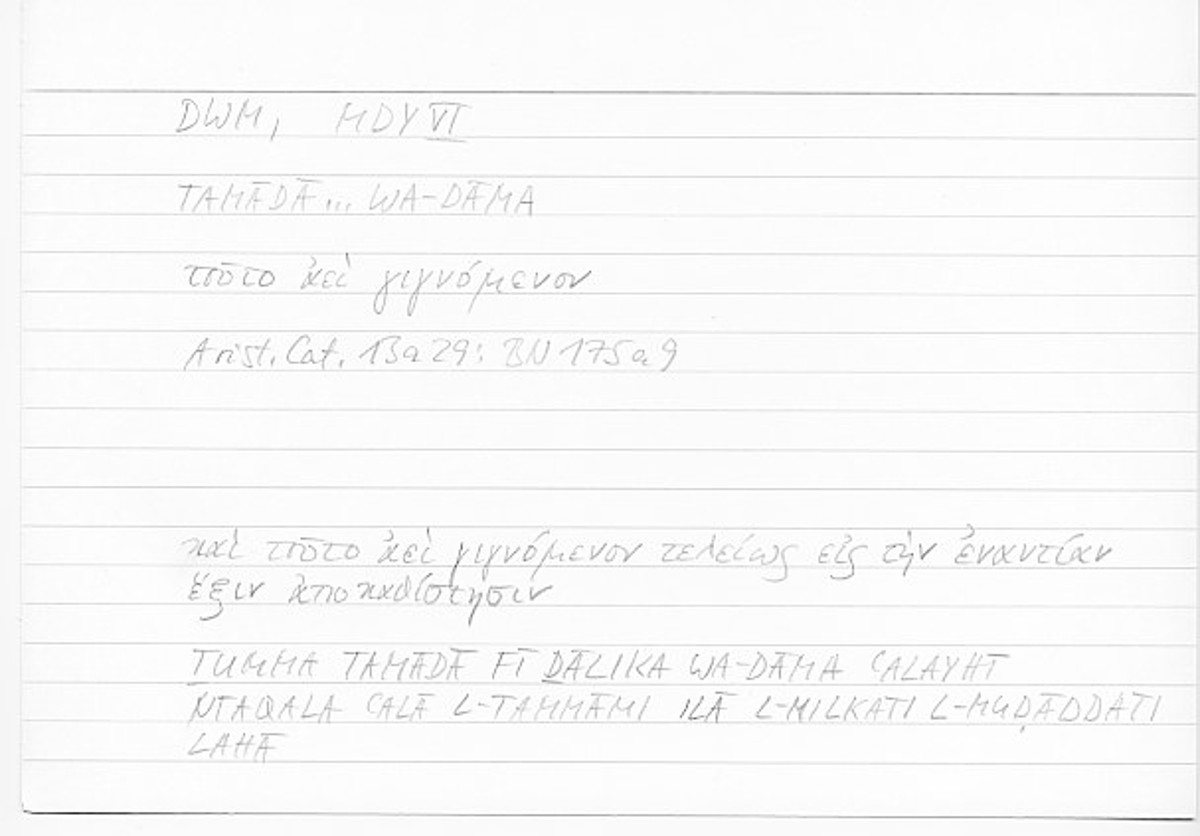 DWM, MDY VI
TAMĀDĀ... WA-DĀMA
τοῦτο ἀεὶ γιγνόμενον
Arist. Cat. 13a29: BN 175a9
καὶ τοῦτο ἀεὶ γιγνόμενον τελείως εἰς τὴν ἐναντίαν
ἕξιν ἀποκαθίστησιν
ṮUMMA TAMĀDĀ FĪ ḎĀLIKA WA-DĀMA ʿALAYHI
NTAQALA ʿALĀ L-TAMMĀMI ILĀ L-MILKATI L-MUḌĀDDATI
LAHĀ